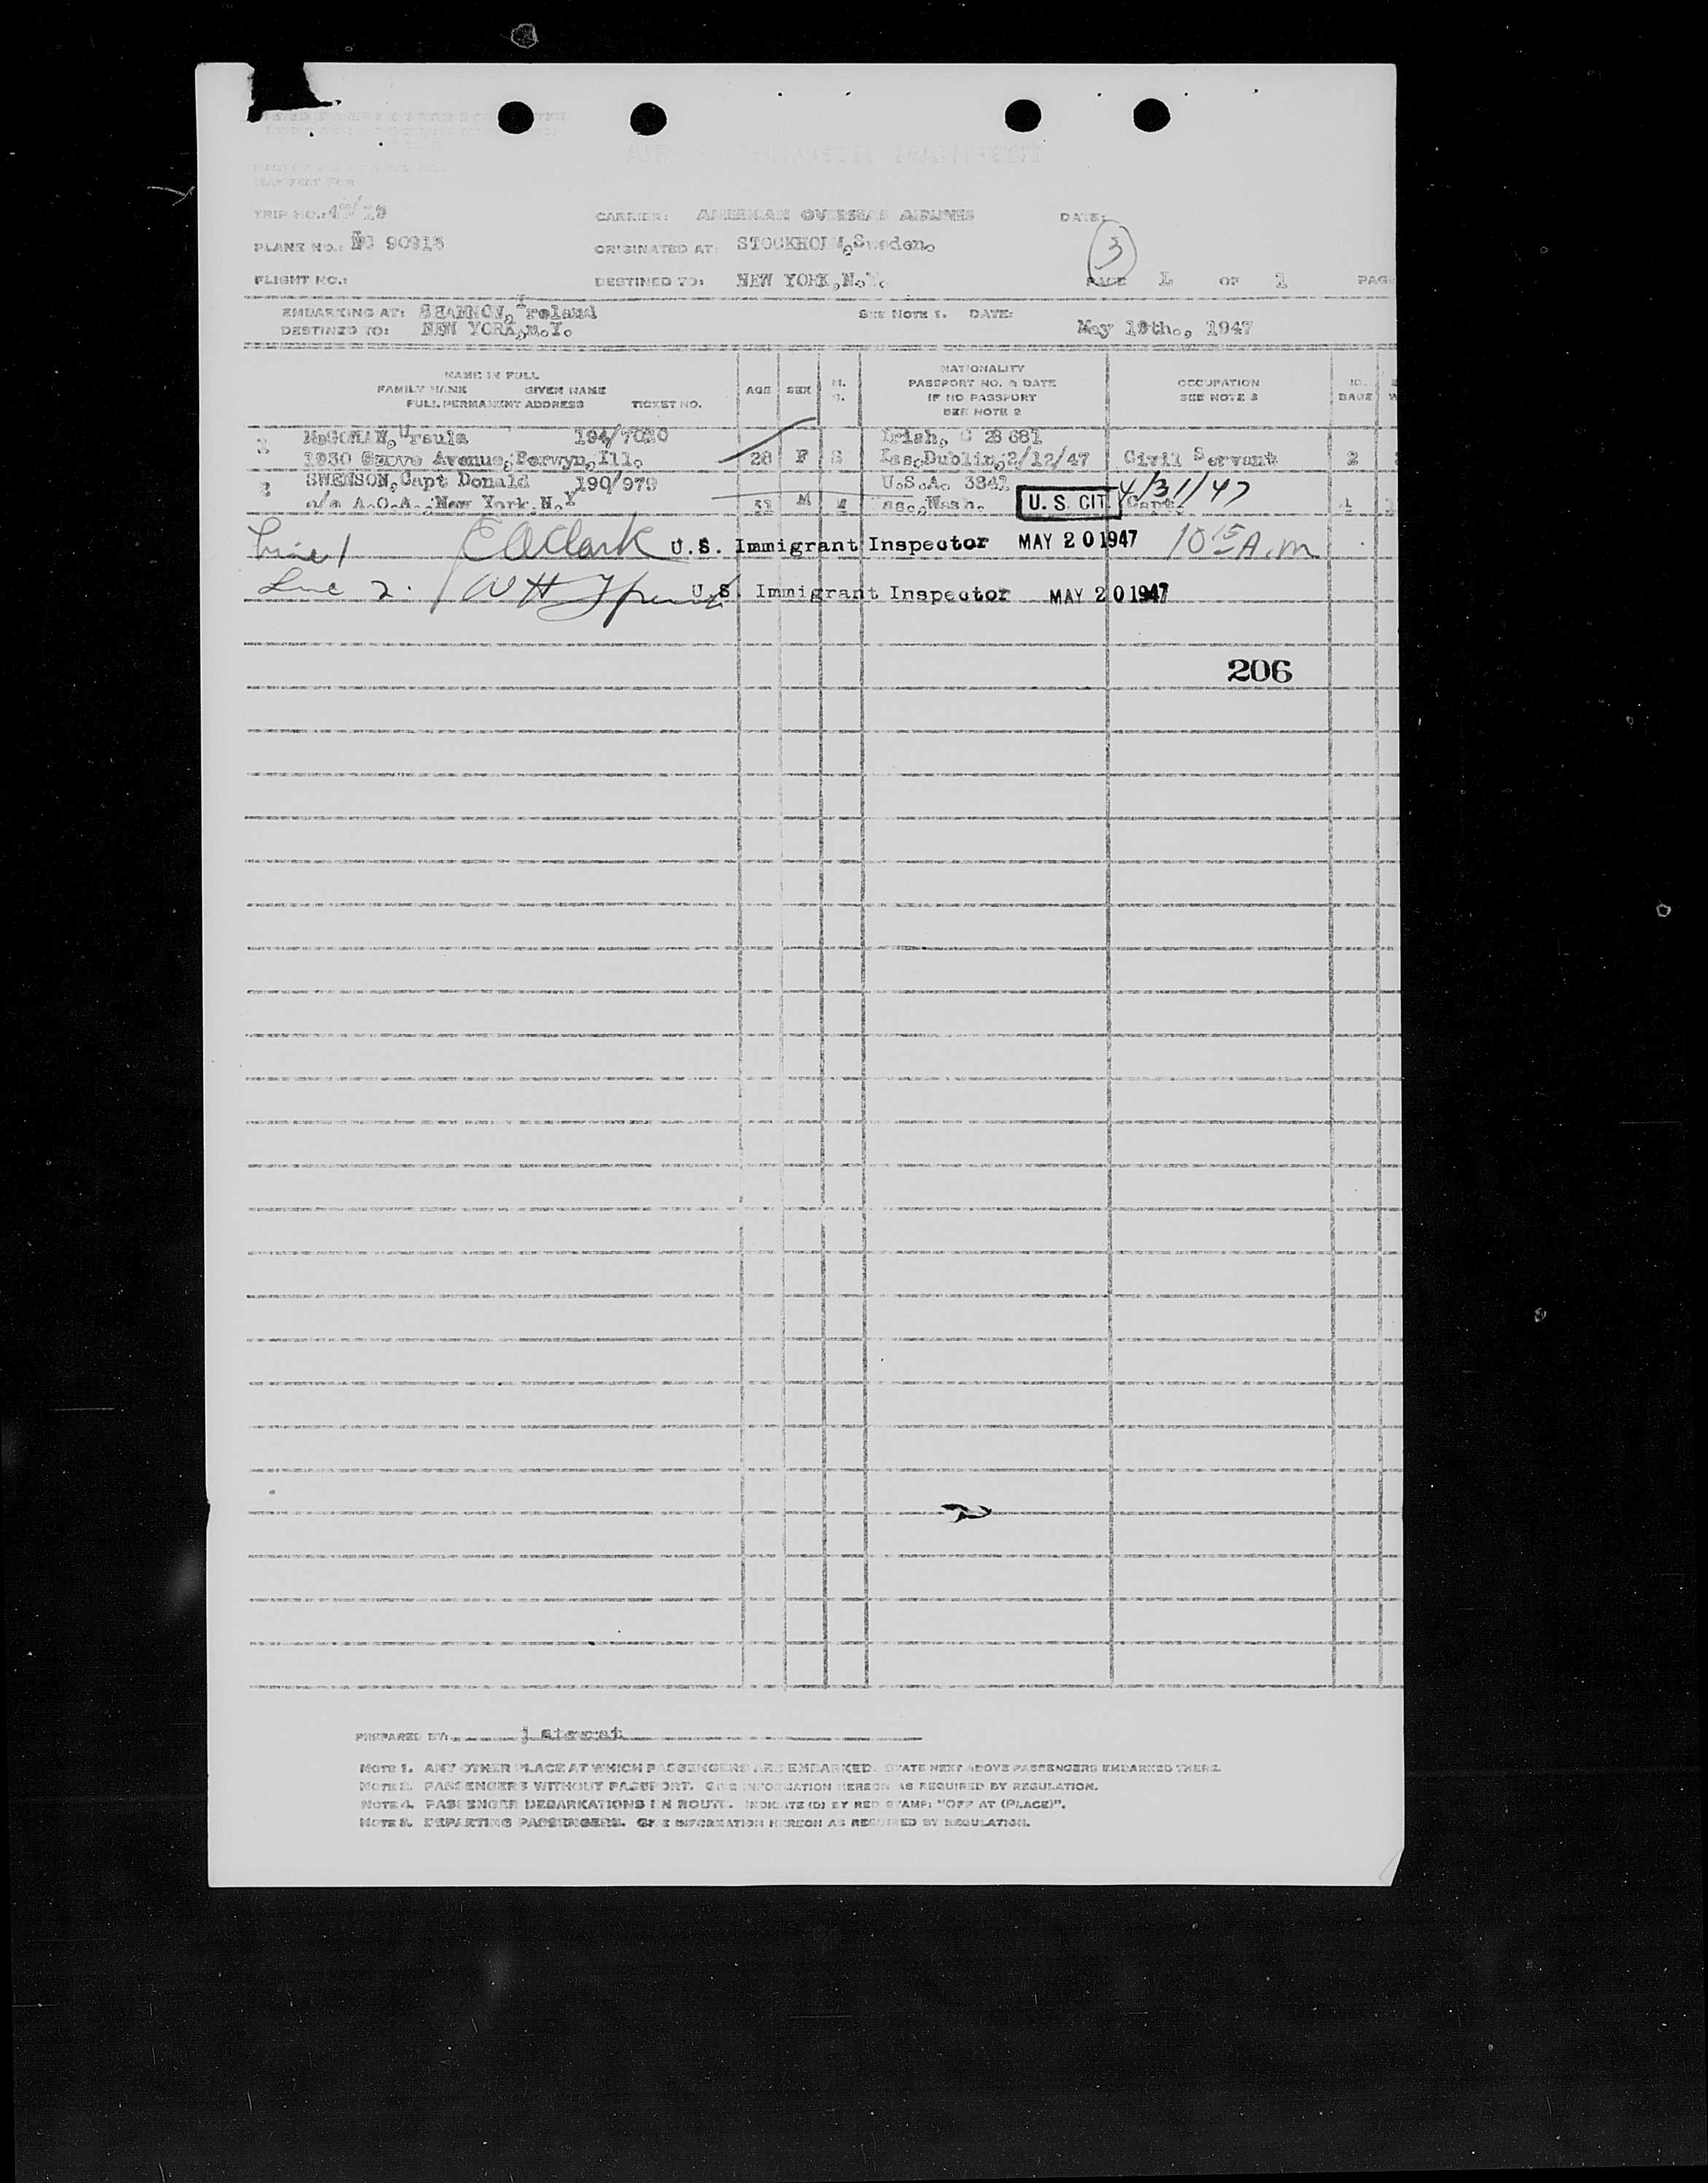 TRIP NO.:
CARRIER: AMERICAN OVERSEAS AIRLINES DATE:
PLANE NO.: ORIGINATED AT: STOCKHOLM, Sweden. 3
FLIGHT NO.: DESTINED TO: NEW YORK, N.Y. PAGE 1 OF 1 PAG
EMBARKING AT: SHANNON, Ireland SEE NOTE 1. DATE:
DESTINED TO: NEW YORK, N.Y. May 19th., 1947
NAME IN FULL
FAMILY NAME GIVEN NAME
FULL PERMANENT ADDRESS TICKET NO.
AGE SEX
NATIONALITY
PASSPORT NO. & DATE
IF NO PASSPORT
SEE NOTE 2
OCCUPATION
SEE NOTE 3
1 McGORAN, Ursula 194/7020 Irish, C 28 681
1930 Grove Avenue, Berwyn, Ill. 28 F S Iss. Dublin, 2/12/47 Civil Servant 2
2 SWENSON, Capt Donald 190/979 U.S.A. 3841
c/o A.O.A., New York, N.Y M M Iss., Wash. U. S. CIT. 4/31/47 Capt. 1
Line 1 E A Clark U. S. Immigrant Inspector MAY 20 1947 10 15 A.m
Line 2. W H U. S. Immigrant Inspector MAY 20 1947
206
PREPARED BY:
NOTE 1. ANY OTHER PLACE AT WHICH PASSENGERS ARE EMBARKED. STATE NEXT ABOVE PASSENGERS EMBARKED THERE.
NOTE 2. PASSENGERS WITHOUT PASSPORT. GIVE INFORMATION HEREON AS REQUIRED BY REGULATION.
NOTE 4. PASSENGER DEBARKATIONS IN ROUTE. INDICATE (D) BY RED STAMP: "OFF AT (PLACE)".
NOTE 5. DEPARTING PASSENGERS. GIVE INFORMATION HEREON AS REQUIRED BY REGULATION.